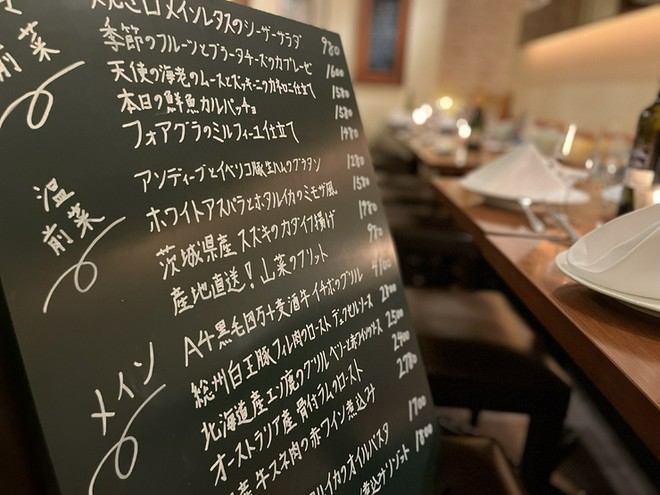 メインレタスのシーザーサラダ 980
前菜
季節のフルーツとブラータチーズのカプレーゼ 1600
天使の海老のムースとズッキーニのカネロニ仕立て 1580
本日の鮮魚カルパッチョ 1580
フォアグラのミルフィーユ仕立て 1980
温前菜
アンディーブとイベリコ豚生ハムのグラタン 1280
ホワイトアスパラとホタルイカのミモザ風 1580
茨城県産スズキのカダイフ揚げ 1780
産地直送!山菜のフリット 980
メイン
A4黒毛四万十麦酒牛イチボのグリル 4100
総州白王豚フィレ肉のロースト デュクセルソース 2800
北海道産エゾ鹿のグリル ベリーと赤ワインソース 2500
オーストラリア産骨付ラムのロースト 2400
産牛スネ肉の赤ワイン煮込み 2780
イカのオイルパスタ 1700
リゾット 1800